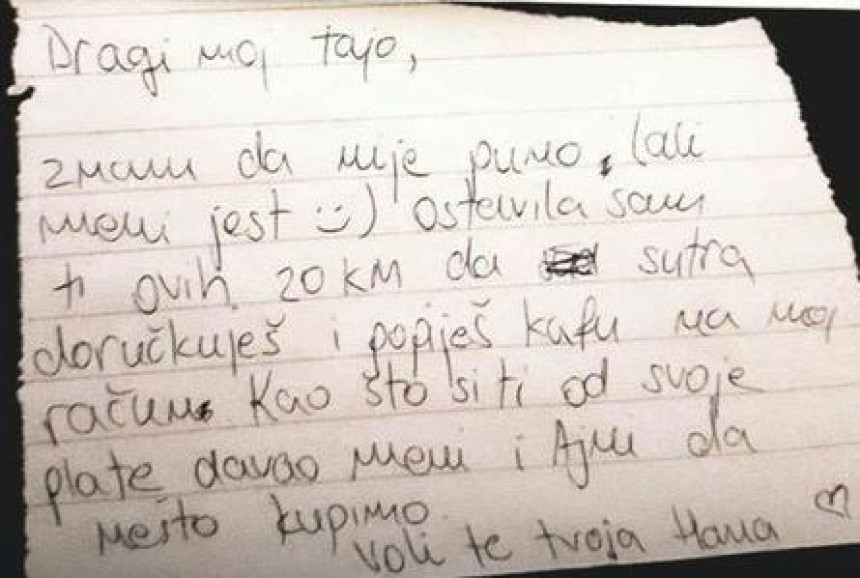 Dragi moj tajo,
znam da nije puno, (ali
meni jest :) ostavila sam
ti ovih 20 KM da sutra
doručkuješ i popiješ kafu na moj
račun. Kao što si ti od svoje
plate davao meni i Ajni da
nešto kupimo.
Voli te tvoja Hana ♡